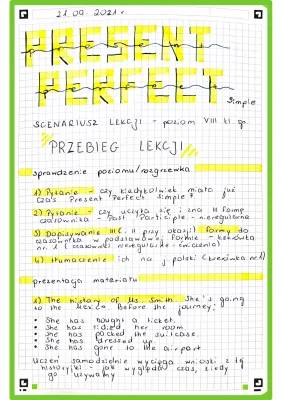 21.09.2021r
PRESENT
PERFECT simple
SCENARIUSZ LEKCJI - poziom VIII kl. sp.
PRZEBIEG LEKCJI
sprawdzenie poziomu/rozgrzewka
1) Pytanie - czy kiedykolwiek miało już
czas Present Perfect Simple?
2) Pytanie - czy uczyła się i zna III formę
czasownika - Past Participle - nieregularne
3) Dopisywanie III (i II przy okazji) formy do
czasownika w podstawowej formie - kartówka
nr 1 (czasowniki nieregularne - ćwiczenia)
4) tłumaczenie ich na j. polski
prezentacja materiału
1) The history of Ms. Smith. She's going
to the Mexico. Before the journey:
• She has bought a ticket.
• She has tidied her room
• She has packed the suitcase
• She has dressed up.
• She has gone to the airport
Uczeń samodzielnie wyciąga wnioski z tej
historyjki - jak wygląda czas, kiedy
go używamy